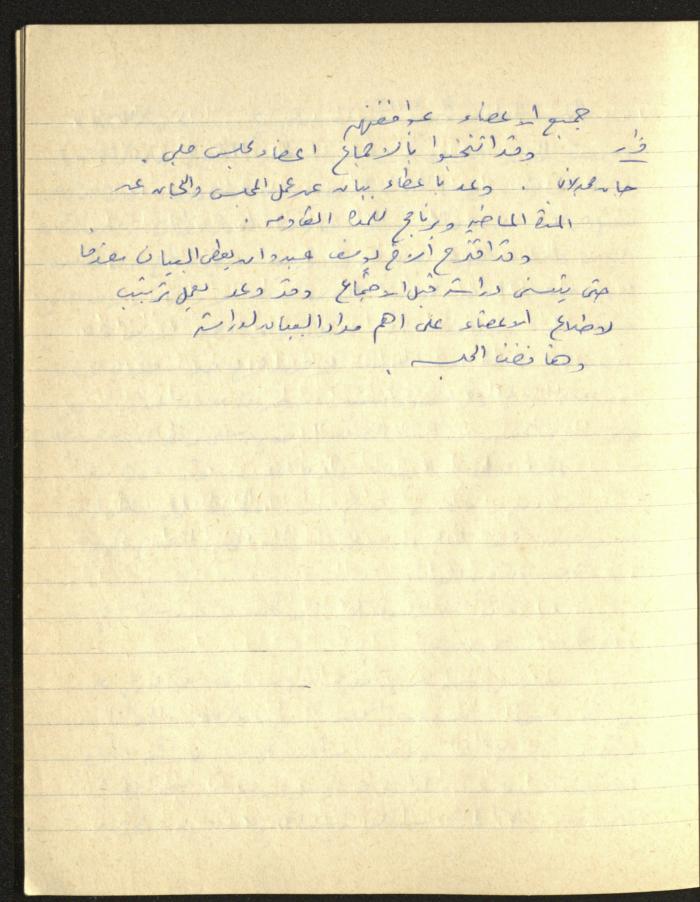 جميع الاعضاء عوافقتهم
قرار وقد انتخبوا بالاجماع اعضاء مجلس ملي .
وعد باعطاء بيان عن عمل المجلس واللجان عن
المدة الماضية وبرنامج للمدة القادمه .
وقد اقترح الاخ يوسف عبدو ان يعطى البيان مقدما
حتى يتسنى دراسته قبل الاجتماع وقد وعد بعمل ترتيب
لاطلاع الاعضاء على اهم مواد البيان لدراسته
وهنا فضت الجلسه .